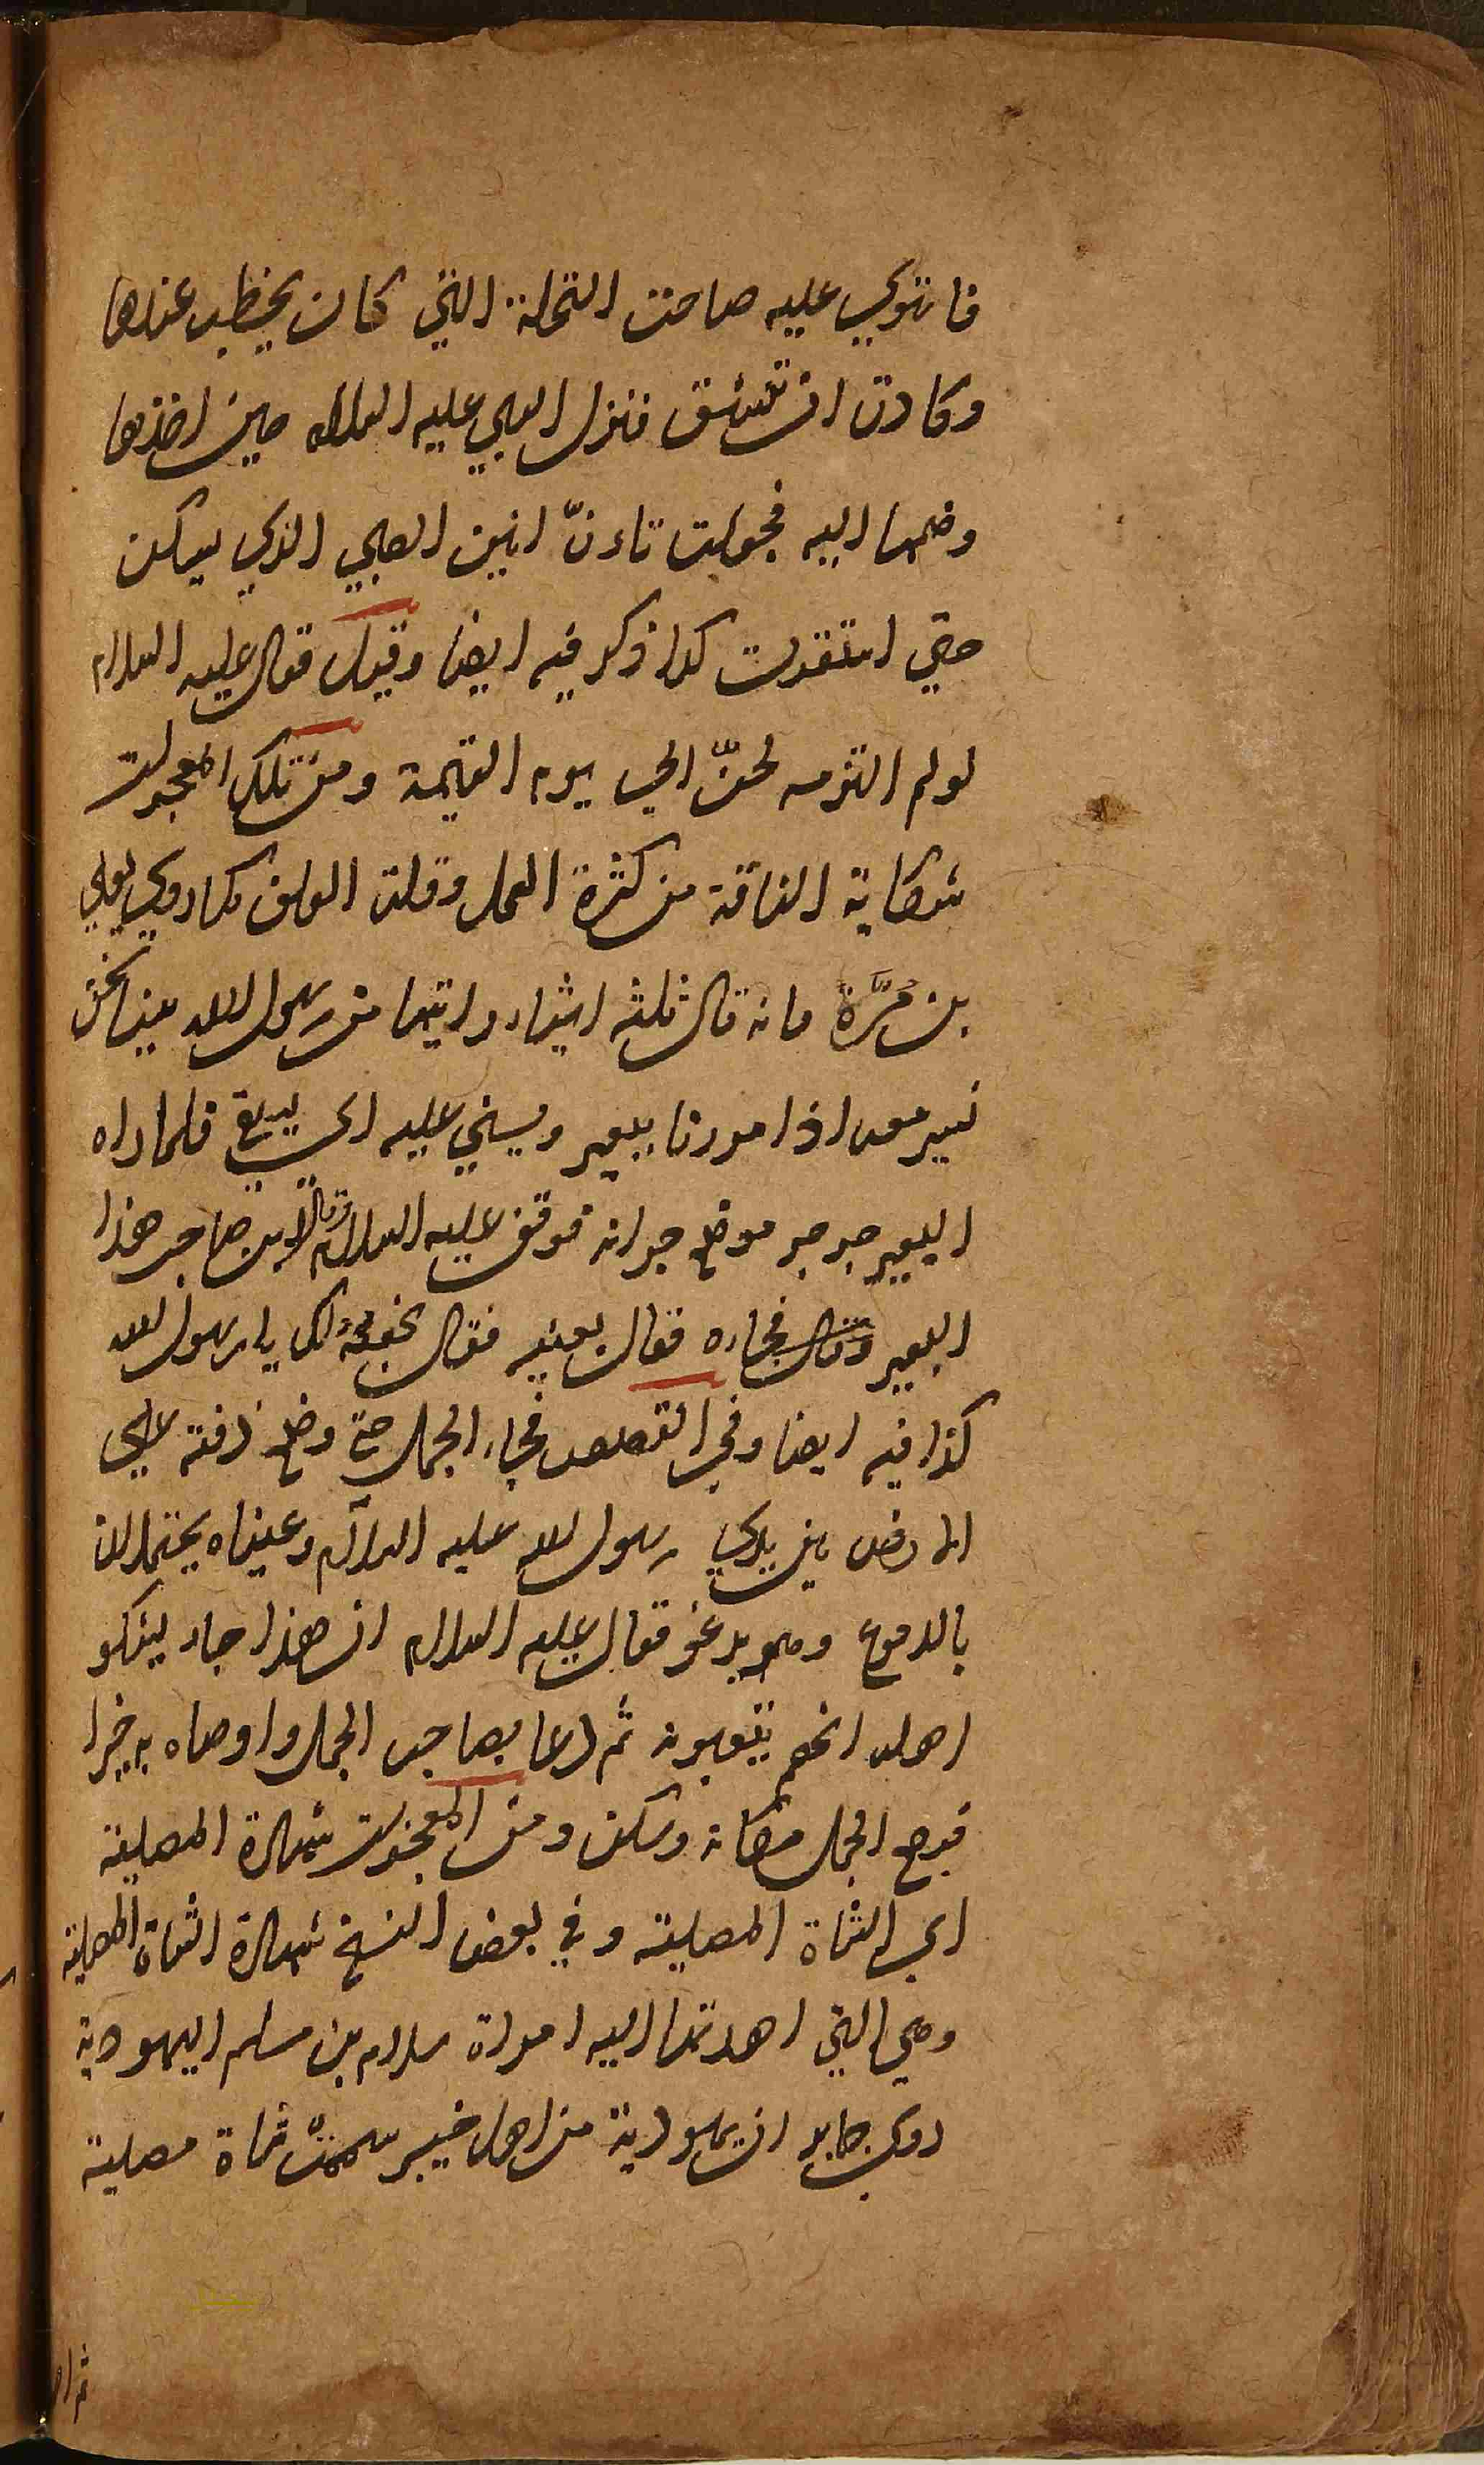 فاستوي عليه صاحت النخلة التي كان يخطب عندها
وكادت ان تنشق فنزل النبي عليه السلام حين اخذها
وضمها اليه فجعلت تاءنّ انين الصبي الذي يسكن
حتي استقرت كذا ذكر فيه ايضا وقيل فقال عليه السلام
لو لم التزمه لحنّ الي يوم القيمة ومن تلك المعجزات
شكاية الناقة من كثرة العمل وقلة العلف كما روي يعلي
بن مرّة فانه قال ثلثه اشياء رايتها من رسول الله بينا نحن
نسير معه اذا مررنا ببعير ويسني عليه اي يسقي فلما راه
البعير جرجر فوضع جرانه فوقف عليه السلام وقال لاين صاحب هذا
البعير وقال فجاءه فقال بعنيه فقال نهبه لك يا رسول الله
كذا فيه ايضا وفي القصص فجاء الجمل حتي وضع ذقنه علي
الارض بين يدي رسول الله عليه السلام وعيناه يهتملان
بالدموع وهو يرغو فقال عليه السلام ان هذا جاء ليشكو
اهله انهم يتعبونه ثم دعا بصاحب الجمل واوصاه به خيرا
فرجع الجمل مكانه وسكن ومن المعجزات شهادة المصلية
اي الشاة المصلية وفي بعض النسخ شهادة الشاة المصلية
وهي التي اهدتها اليه امراة سلام بن مسلم اليهودية
روي جابر ان يهودية من اهل خيبر سممت شاة مصلية